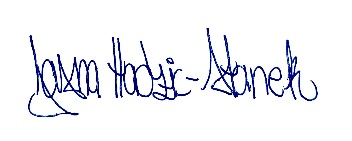 Jasna Hadzic-Stanek